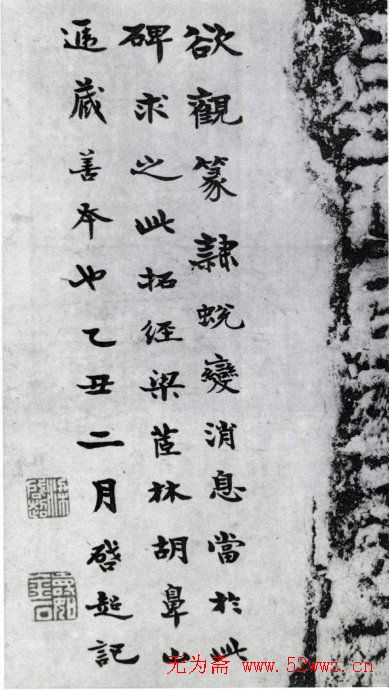 欲觀篆隷蛻變消息當於此
碑求之此拓經梁茝林胡鼻山
遞藏善本也乙丑二月啓超記
无为斋 www.52wwz.cn